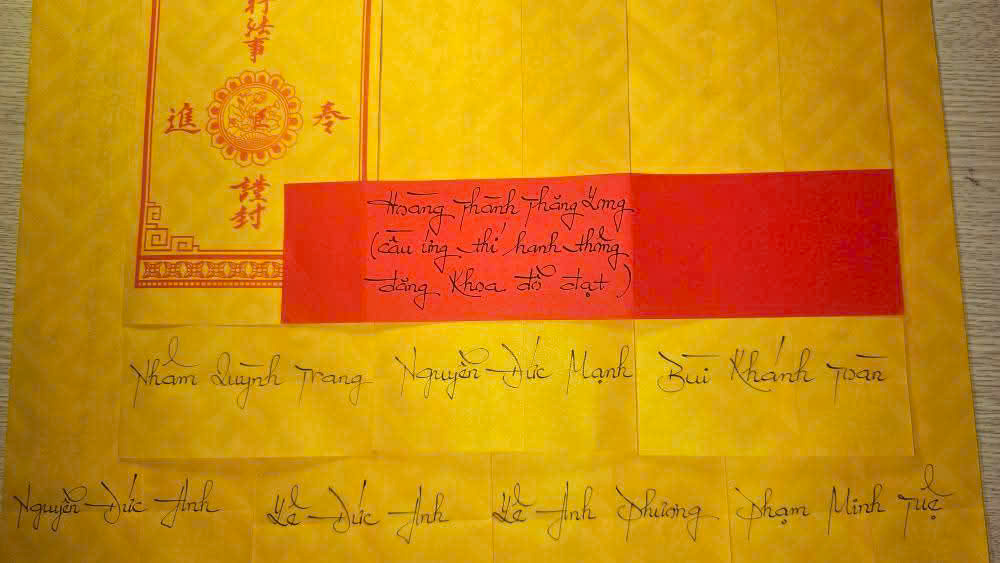 行法事
進 奉
證封
Hoàng Thành Thăng Long
(cầu ứng thí hanh thông
đăng khoa đỗ đạt)
Nhâm Quỳnh Trang
Nguyễn Đức Mạnh
Bùi Khánh Toàn
Nguyễn Đức Anh
Lê Đức Anh
Lê Anh Phương
Phạm Minh Tuệ